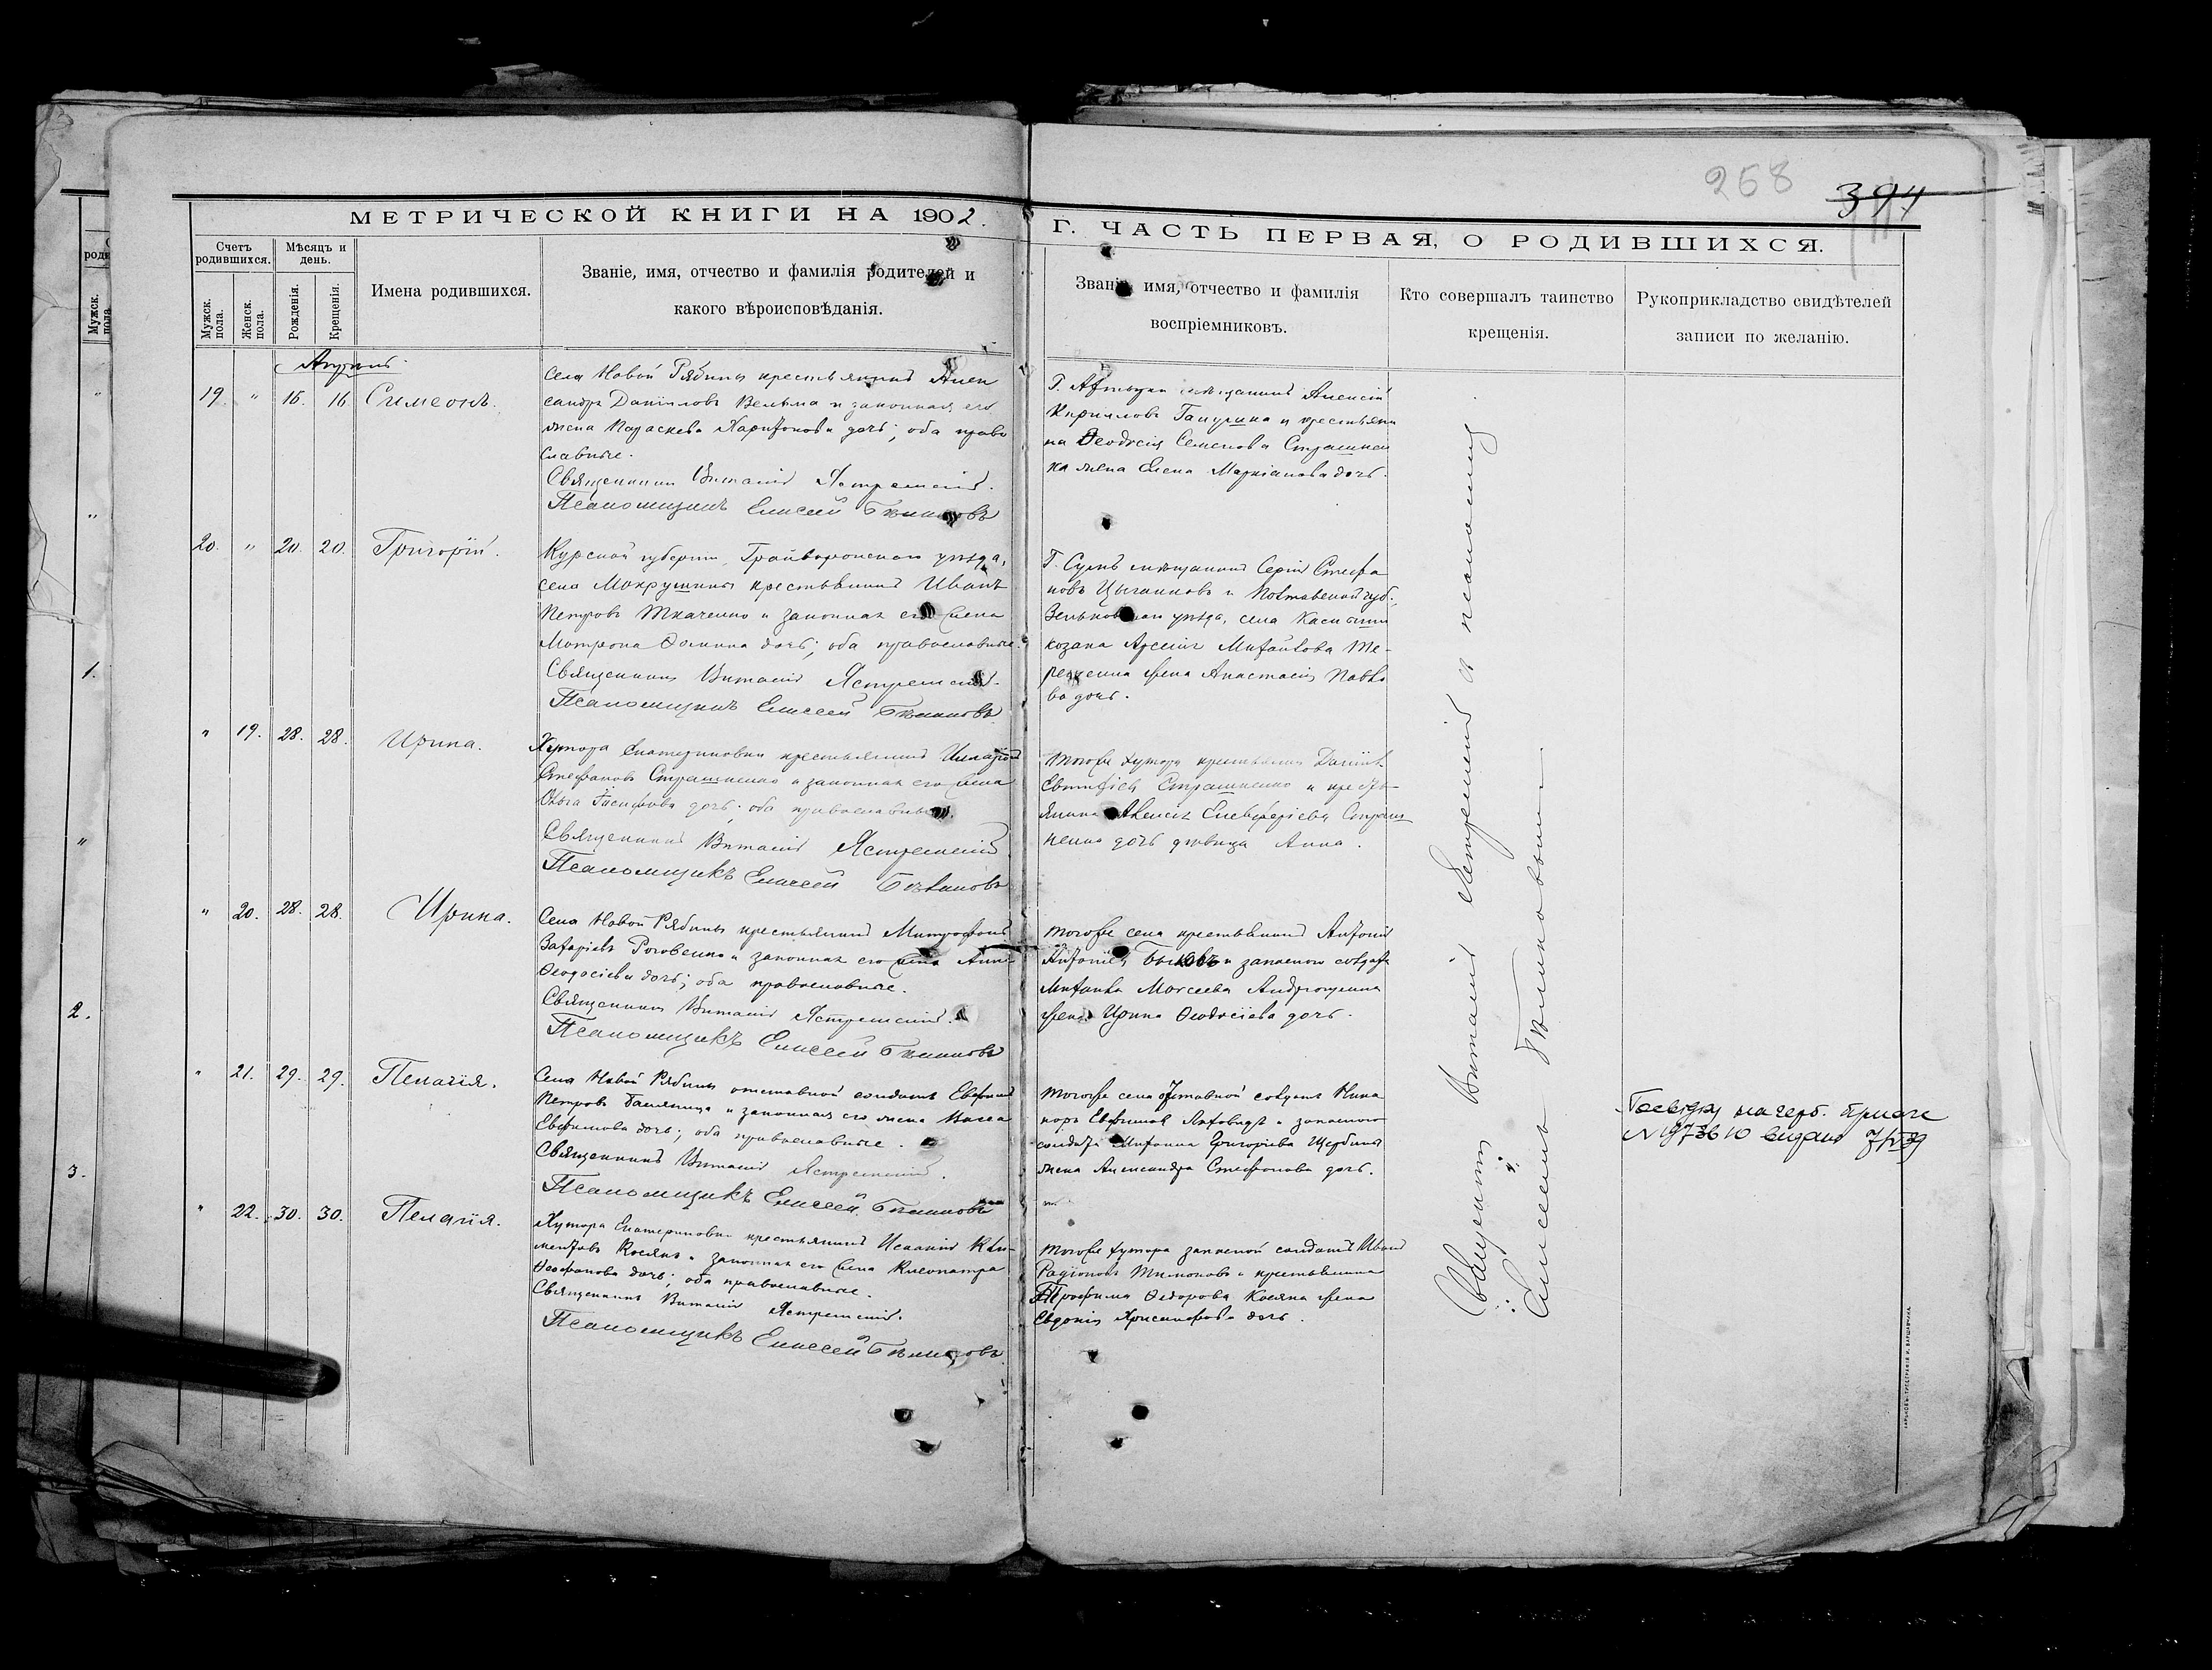 268
394
МЕТРИЧЕСКОЙ КНИГИ НА 1902.
Г. ЧАСТЬ ПЕРВАЯ, О РОДИВШИХСЯ.
Счетъ родившихся.
Мѣсяцъ и день.
Мужск. пола.
Женск. пола.
Рожденія.
Крещенія.
Имена родившихся.
Званіе, имя, отчество и фамилія родителей и
какого вѣроисповѣданія.
Званіе, имя, отчество и фамилія
воспріемниковъ.
Кто совершалъ таинство
крещенія.
Рукоприкладство свидѣтелей
записи по желанію.
Мужск. пола.
Апрель
19. " 16. 16 Симеонъ.
Села Новой Рябины крестьянинъ Алек
сандръ Даніиловъ Вельма и законная его
жена Параскева Харитонова дочь; оба право
славные.
Священникъ Виталій Ястремскій.
Псаломщикъ Елисей Бѣликовъ
Кирилловъ и крестьяни
на Ѳеодосія Семенова Страшнен
ка жена Елена Маркіанова дочь.
20. " 20. 20. Григорій.
Курской губерніи, Грайворонскаго уѣзда,
села Мокрушины крестьянинъ Иванъ
Петровъ Ткаченко и законная его жена
Матрона Ѳомина дочь; оба православные.
Священникъ Виталій Ястремскій.
Псаломщикъ Елисей Бѣликовъ
Г. Сумъ мѣщанинъ Сергій Стефа
новъ Цыганковъ и Полтавской губ.,
Зеньковскаго уѣзда, села
козака Арсенія Михайлова Те-
рещенка жена Анастасія Павло
ва дочь.
" 19. 28. 28. Ирина.
Хутора Екатериновки крестьянинъ
Стефановъ Страшненко и законная его жена
Ольга Іосифова дочь; оба православные.
Священникъ Виталій Ястремскій
Псаломщикъ Елисей Бѣликовъ
Тогоже хутора крестьянинъ Даніилъ
Евтихіевъ Страшненко и кресть-
янина Алексія Елевферіева Страш
ненка дочь дѣвица Анна.
" 20. 28. 28. Ирина.
Села Новой Рябины крестьянинъ Митрофанъ
Захаріевъ Роговенко и законная его жена Анна
Ѳеодосіева дочь; оба православные.
Священникъ Виталій Ястремскій.
Псаломщикъ Елисей Бѣликовъ
Тогоже села крестьянинъ Антоній
и запаснаго солдата
Михаила Моисеева Андрющенка
жена Ирина Ѳеодосіева дочь.
" 21. 29. 29. Пелагія.
Села Новой Рябины отставной солдатъ Евфимій
Петровъ и законная его жена Васса
Евфимова дочь; оба православные.
Священникъ Виталій Ястремскій.
Псаломщикъ Елисей Бѣликовъ
Тогоже села отставной солдатъ Ника
норъ Евфимовъ и запаснаго
солдата Григоріева Щербины
жена Александра Стефанова дочь.
на герб.
N 1973610 видано
" 22. 30. 30. Пелагія.
Хутора Екатериновки крестьянинъ Исаакій Кли-
ментовъ Косякъ и законная его жена Клеопатра
Ѳеофанова дочь; оба православные.
Священникъ Виталій Ястремскій.
Псаломщикъ Елисей Бѣликовъ
Тогоже хутора запасной солдатъ Иванъ
Радіоновъ Тимоновъ и крестьянина
Трофима Ѳедорова Косяка жена
Евдокія Хрисанфова дочь.
Священникъ Виталій Ястремскій и псаломщикъ
Елисей Бѣликовъ
1.
2.
3.